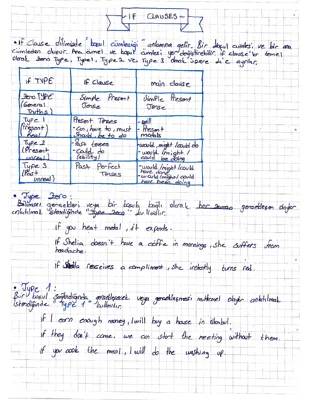 IF CLAUSES
• If Clause dilimizde "koşul cümleciği" anlamına gelir. Bir koşul cümlesi ve bir ana
cümleden oluşur. Ana cümlenin ve koşul yer değiştirebilir. if clause'lar temel
olarak Zero Type, Type 1, Type 2 ve Type 3 olmak üzere 4'e ayrılır.
if TYPE | IF Clause | main clause
Zero TYPE (General Truths) | Simple Present Tense | Simple Present Tense
Type 1 (Present Real) | Present Tenses - can, have to, must should, be to do | - will - Present - modals
Type 2 (Present unreal) | - Past tenses - could to (ability) | - would/might/could do - would/might/could be doing
Type 3 (Past unreal) | Past Perfect Tenses | - would/might/could have done - would/might/could have been doing
• Type Zero:
Bilimsel gerçekleri veya bir koşula bağlı olarak her zaman gerçekleşen olaylar
anlatılmak istendiğinde "Type zero" kullanılır.
if you heat metal, it expands.
if Sheila doesn't have a coffee in mornings, she suffers from
headache.
if Sheila receives a compliment, she instantly turns red.
• Type 1:
Bir koşul gerçekleşecek veya gerçekleşmesi muhtemel olaylar anlatılmak
istendiğinde "TYPE 1" kullanılır.
if I earn enough money, I will buy a house in istanbul.
if they don't come, we can start the meeting without them.
if you cook the meal, I will do the washing up.